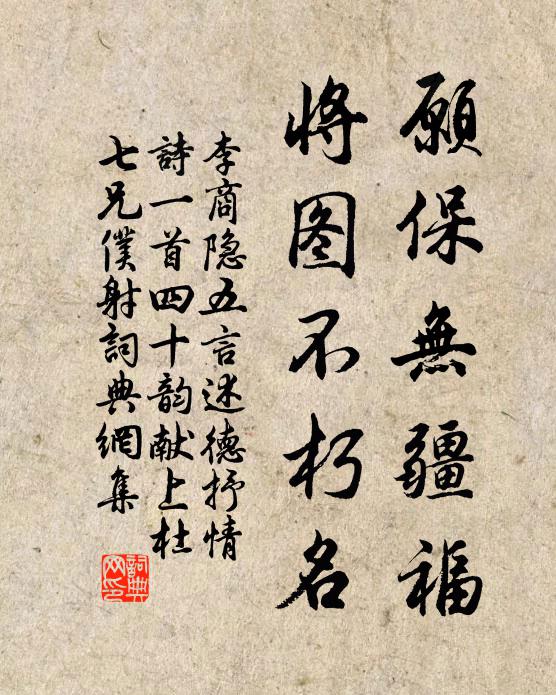 願保無疆福
將图不朽名
李商隐五言述德抒情
詩一首四十韵献上杜
七兄僕射詞典網集
詞典
网印